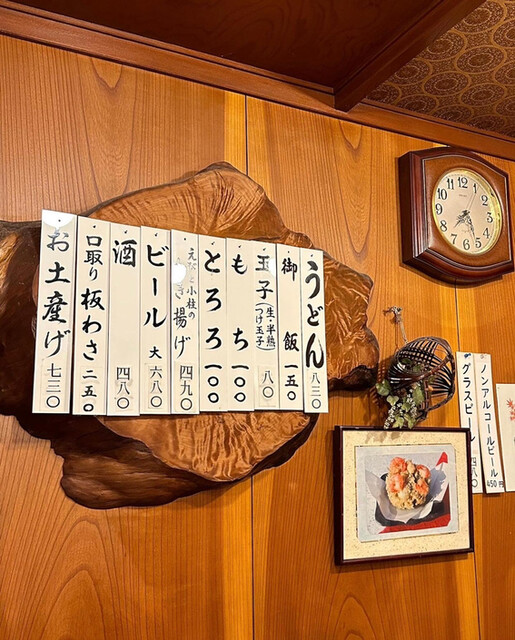 うどん 八三〇
御飯 一五〇
玉子(生・半熟 つけ玉子) 八〇
もち 一〇〇
とろろ 一〇〇
えびと小柱の
かき揚げ 四九〇
ビール 大 六八〇
酒 四八〇
口取り 板わさ 二五〇
お土産げ 七三〇
ノンアルコールビール 450円
グラスビール 四八〇
12
1
2
3
4
5
6
7
8
9
10
11